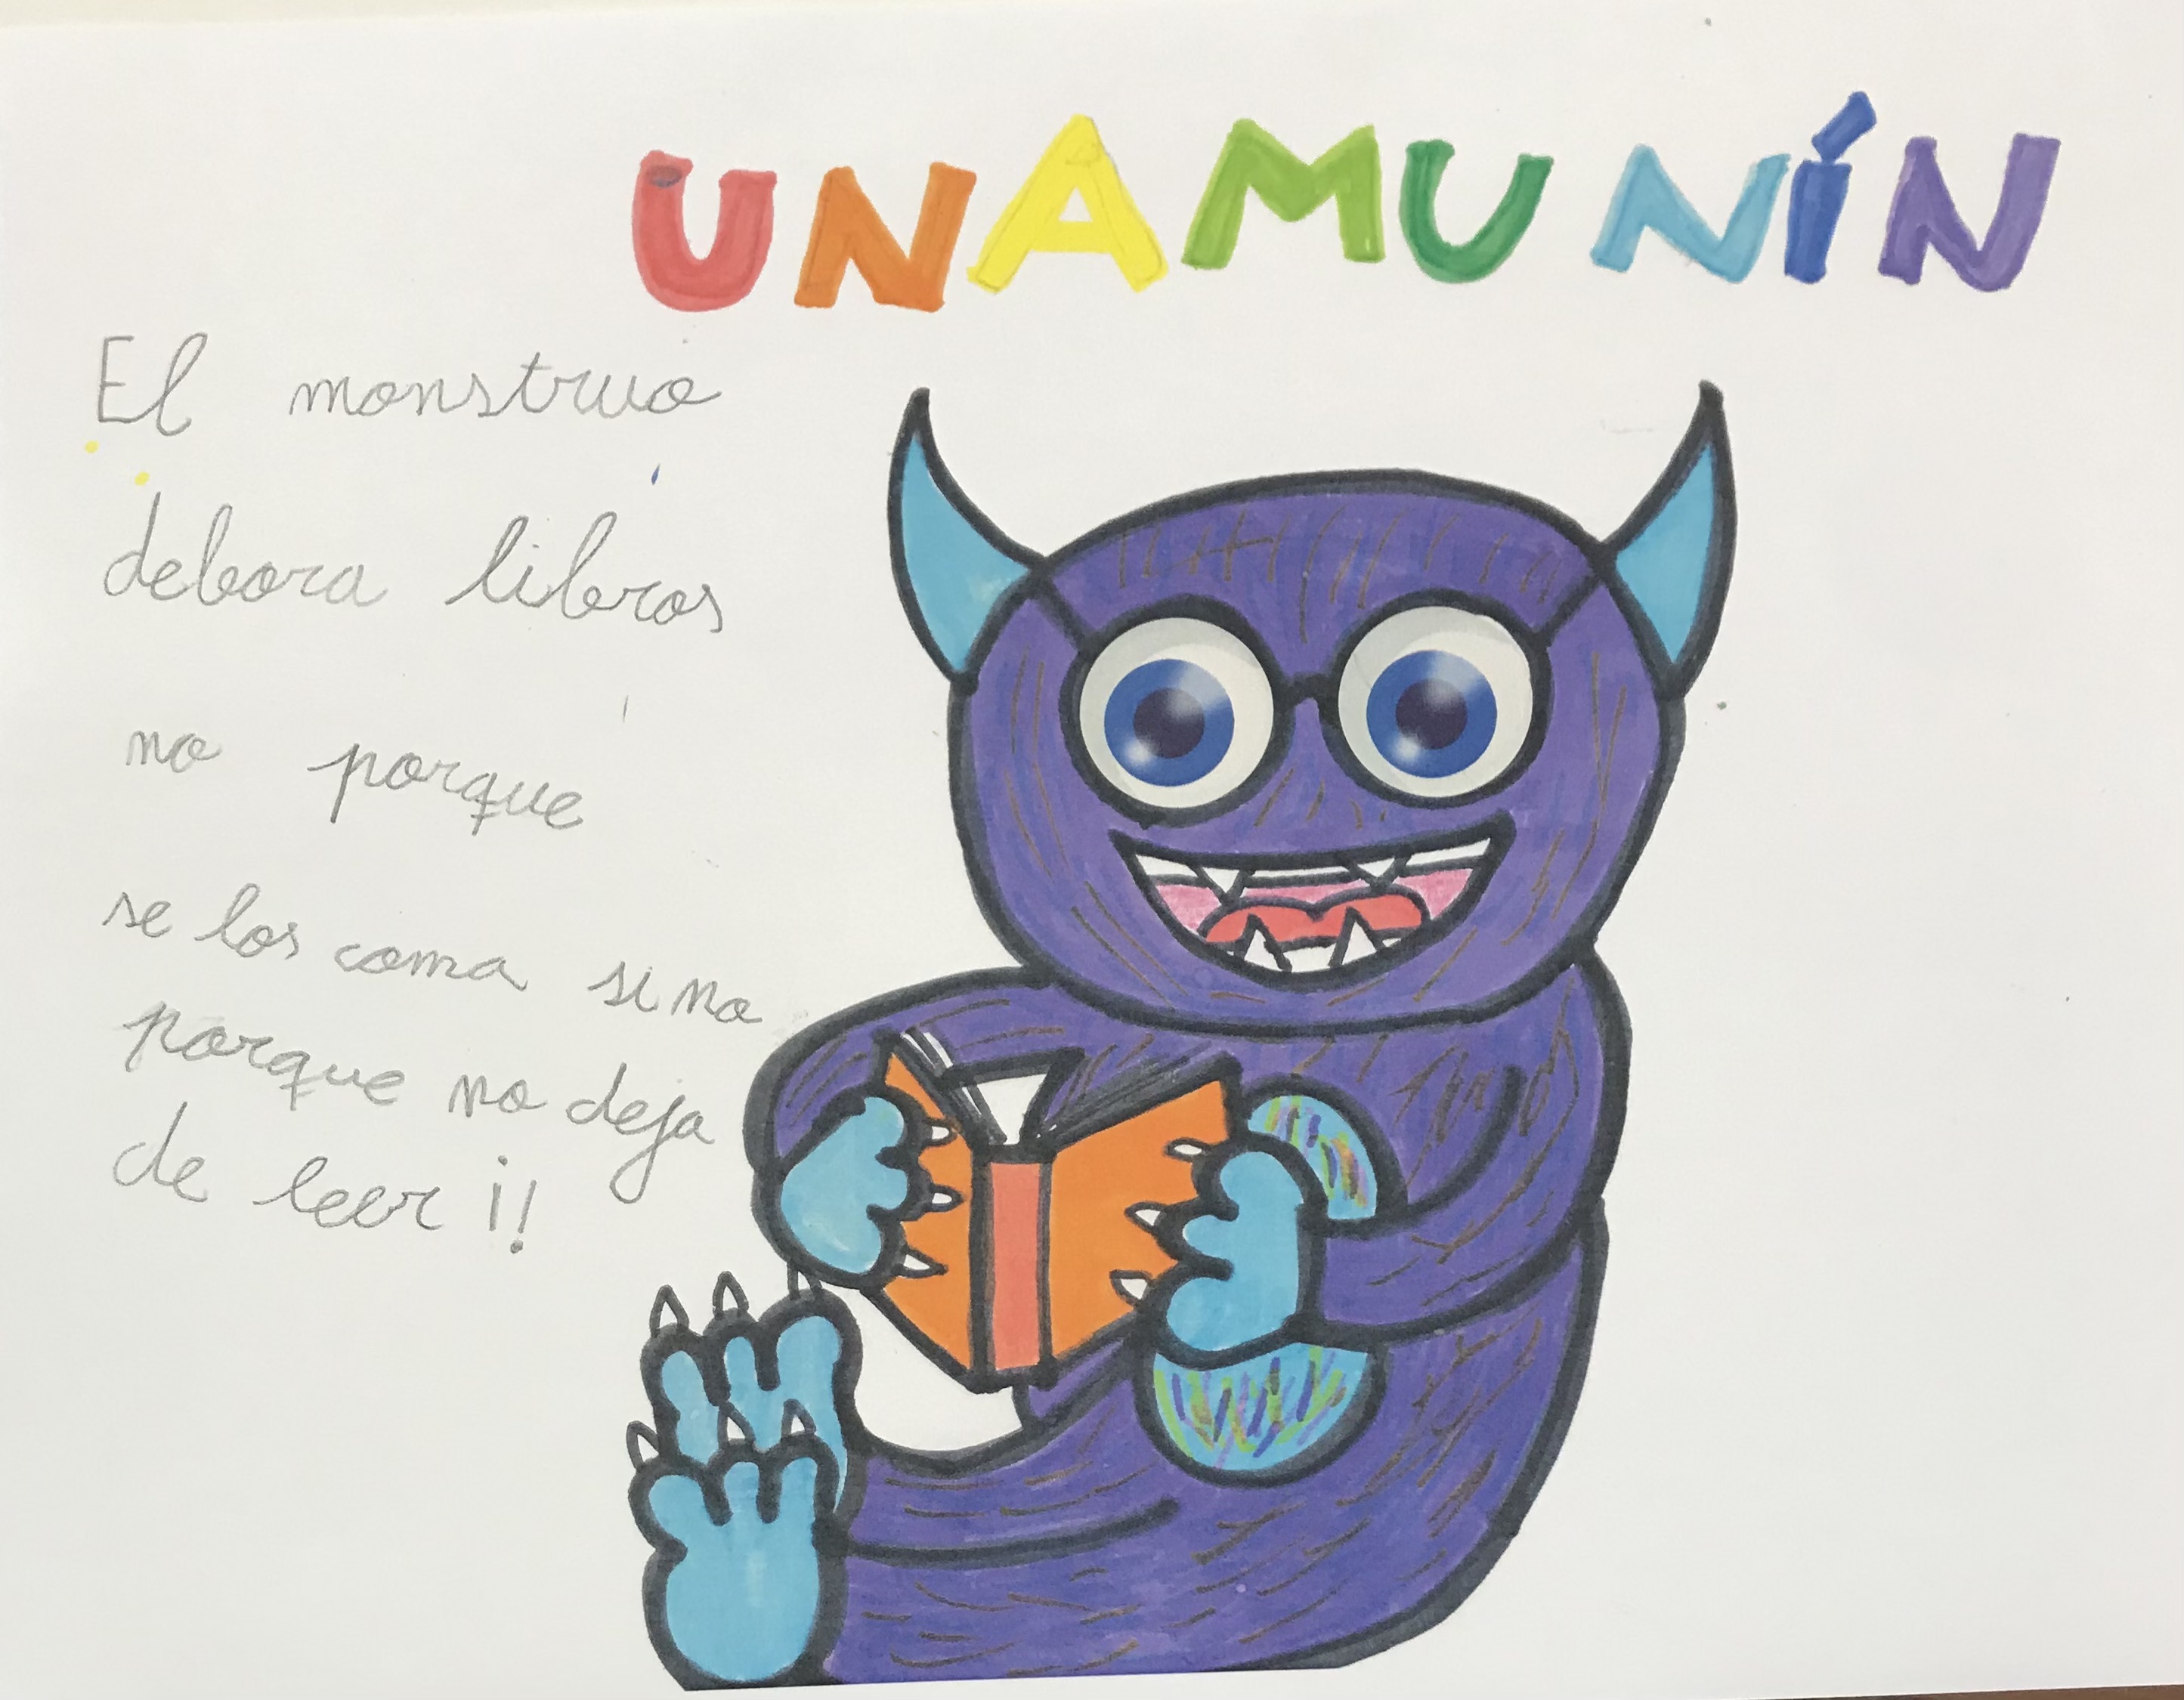 UNAMUNÍN
El monstruo
debora libros
no porque
se los coma sino
porque no deja
de leer ¡!